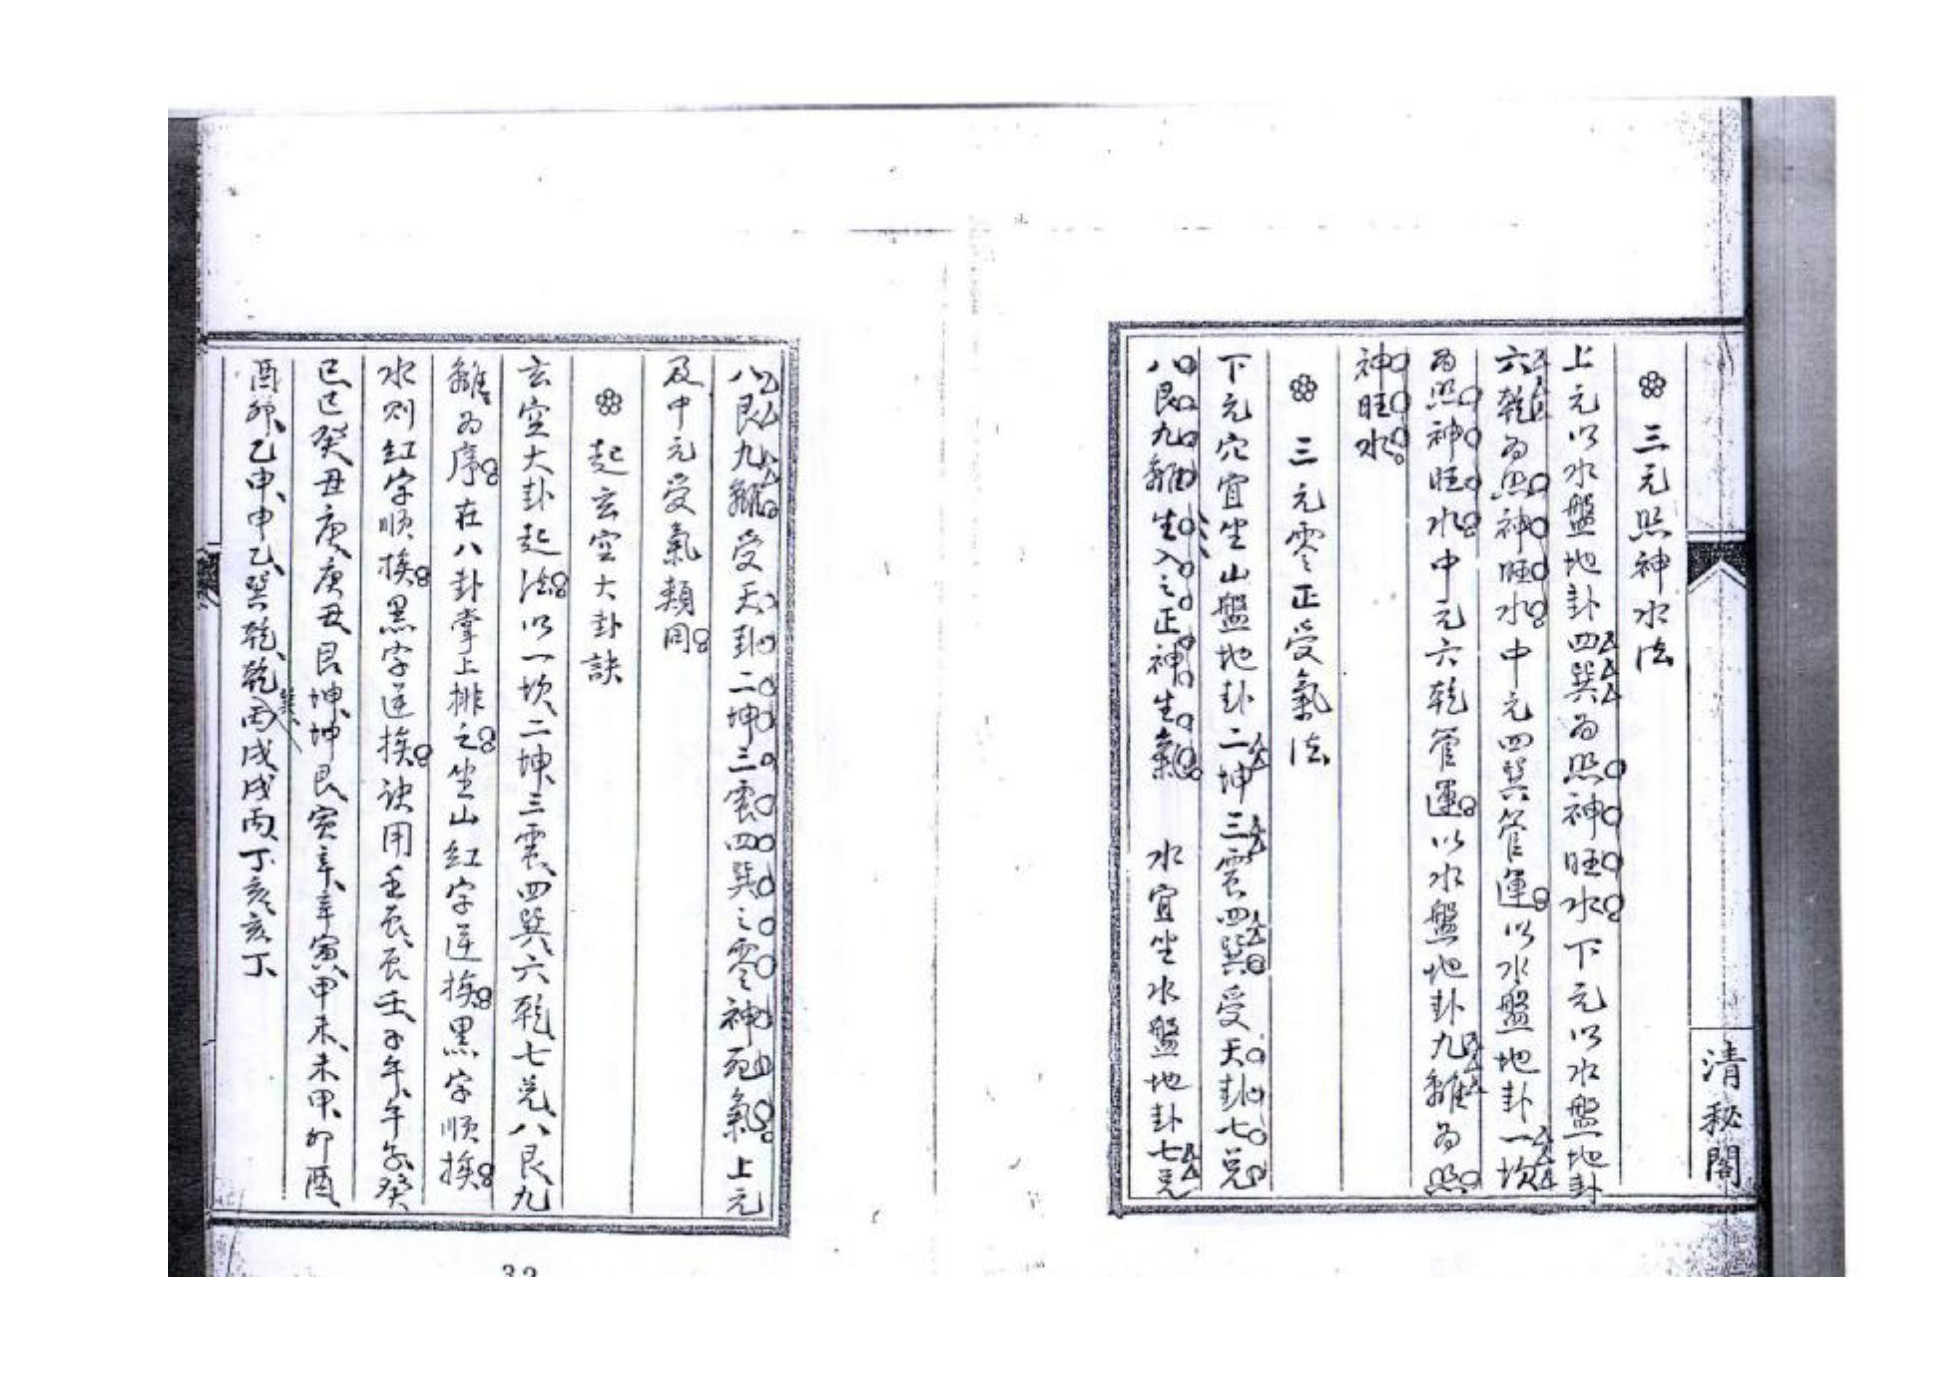 清秘閣
三元照神水法
上元以水盤地卦四巽為照神旺水下元以水盤地卦
六乾為照神旺水中元四巽管運以水盤地卦一坎
為照神旺水中元六乾管運以水盤地卦九離為照
神旺水
三元零正受氣法
下元穴宜坐山盤地卦二坤三震四巽受天卦七兌
八艮九離生入之正神生氣 水宜坐水盤地卦七兌
八艮九離受天卦二坤三震四巽之零神死氣上元
及中元受氣類同
起玄空大卦訣
玄空大卦起法以一坎二坤三震四巽六乾七兌八艮九
離為序在八卦掌上排之坐山紅字逆挨黑字順挨
水則紅字順挨黑字逆挨訣用壬辰辰壬子午午子癸
巳巳癸丑庚庚丑艮坤坤艮寅辛辛寅甲未未甲卯酉
酉卯乙申申乙巽乾乾丙戌戌丙丁亥亥丁
32